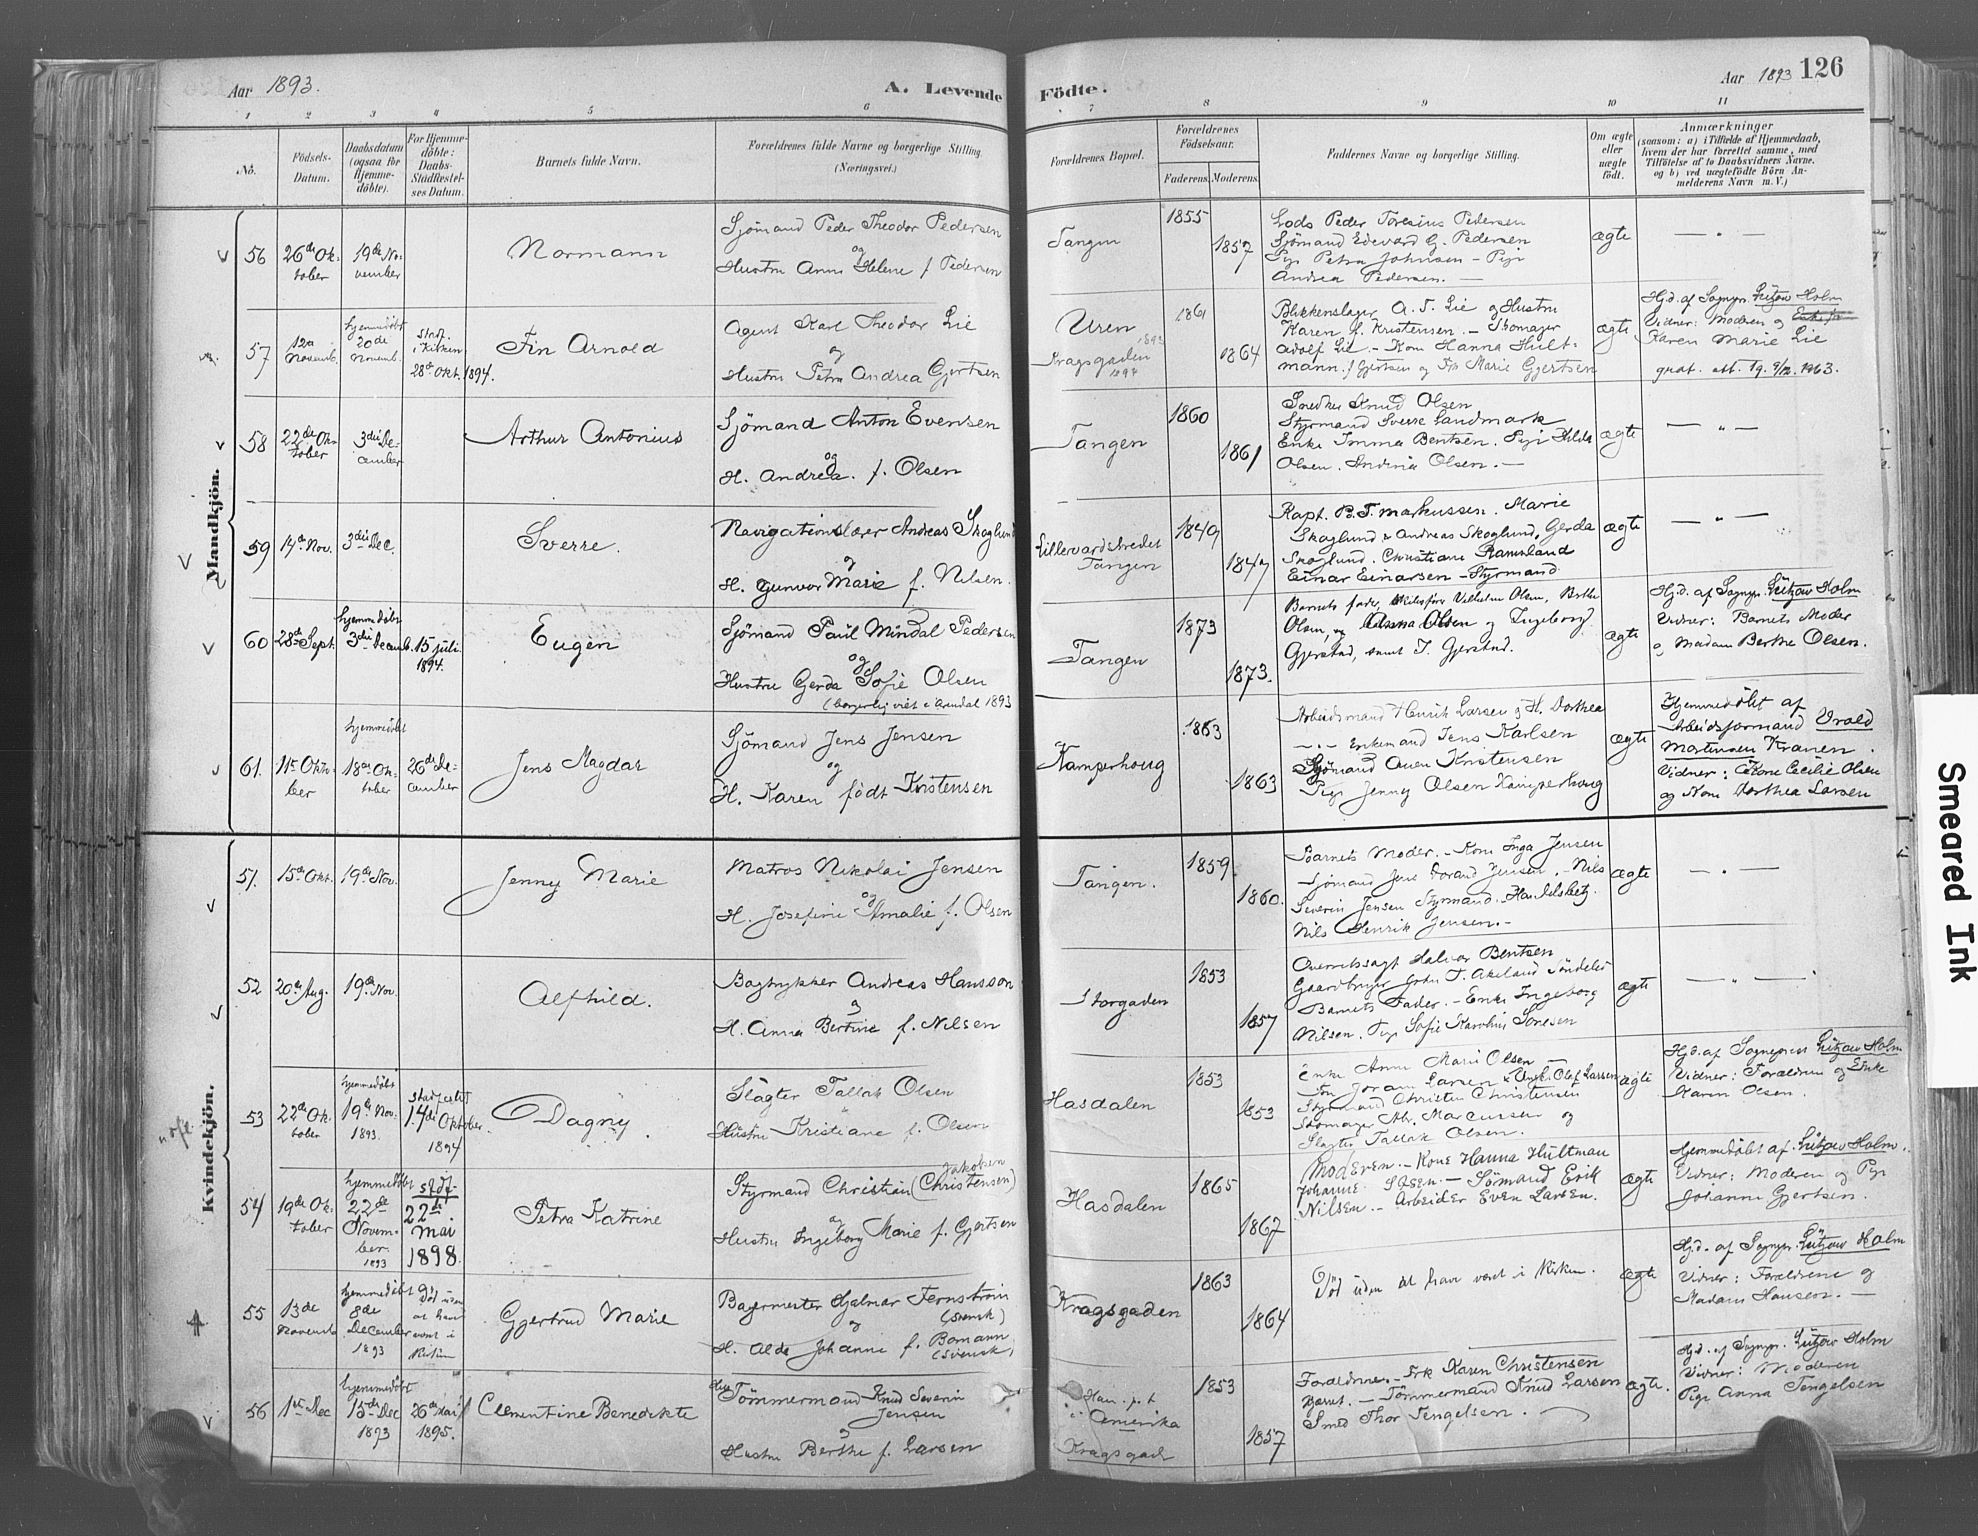 Aar 1893.
A. Levende
Födte.
Aar 1893 126
1 2 3 4 5 6 7 8 9 10 11
No.
Födsels-
Datum.
Daabsdatum
(ogsaa for
Hjemme-
döbte).
For Hjemme-
döbte:
Daabs-
Stadfæstel-
ses Datum.
Barnets fulde Navn.
Forældrenes fulde Navne og borgerlige Stilling
(Næringsvei.)
Forældrenes Bopæl.
Forældrenes
Födselsaar.
Faderens.
Moderens.
Faddernes Navne og borgerlige Stilling.
Om ægte
eller
uægte
født.
Anmærkninger
(saasom: a) i Tilfælde af Hjemmedaab,
hvem der har forrettet samme, med
Tilföielse af to Daabsvidners Navne,
og b) ved uægtefödte Börn An-
melderens Navn m. V.)
Mandkjön.
56
26de Ok-
tober
19de No-
vember
Normann
Sjömand Peder Theodor Pedersen
og
Hustru Anna Helene f Pedersen
Tangen
1855
1857
Lods Peder Toresius Pedersen
Sjömand Edevard G. Pedersen
Pige Petra Johnsen - Pige
Andrea Pedersen.
ægte
— " —
57
12te
Novemb.
hjemmedöbt
20de
Novemb.
stadf.
i Kirken
28de Okt. 1894.
Fin Arnold
Agent Karl Theodor Lie
og
Hustru Petra Andrea Gjertsen
Uren
1893
Kragsgaden
1894
1861
1864
Blikkenslager A. T. Lie og Hustru
Karen f. Kristensen. - Skomager
Adolf Lie. - Kone Hanna Hult-
mann f Gjertsen og Frk Marie Gjertsen
ægte
Hjd. af Sognpr. Lützow Holm
Vidner: Moderen og
Karen Marie Lie
58
22de Ok-
tober
3die De-
cember
Arthur Antonius
Sjömand Anton Evensen
og
H. Andrea. f. Olsen
Tangen
1860
1861
Snedker Knud Olsen
Styrmand Sverre Landmark
Enke Imma Bentsen. Pige Hilda
Olsen. Andrea Olsen. —
ægte
— " —
59
14de Nov.
3die Dec.
Sverre.
Navigationslærer Andreas Skoglund
og
H. Gunvor Marie f. Nilsen.
Lillevardstredet
Tangen
1849
1847
Kapt. B. T. Markussen. Marie
Skoglund & Andreas Skoglund, Gerda
Skoglund. Christiane Ramsland
Einar Einarsen - Styrmand
ægte
— " —
60
28de Sept.
hjemmedöbt
3die Decemb.
15 juli
1894.
Eugén
Sjömand Paul Mindal Pedersen
og
Hustru Gerda Sofie Olsen
(borgerlig viet i Arendal 1893
Tangen
1873
1873.
Barnets fader, Vilhelm Olsen, Berthe
Olsen, og Anna Olsen og Ingeborg
Gjerstad, samt T. Gjerstad.
ægte
Hjd. af Sognpr. Lützow Holm
Vidner: Barnets Moder
og Madam Berthe Olsen.
61.
11te Okto-
ber
hjemmedöbt
18de Ok-
tober
26de De-
cember
Jens Magdar
Sjömand Jens Jensen
og
H. Karen född Kristensen
Kamperhoug
1863
1863
Arbeidsmand Henrik Larsen & H. Dorthea
— " — Enkemand Jens Karlsen
Sjömand Owen Kristensen
Pige Jenny Olsen Kamperhoug
ægte
Hjemmedöbt af
Arbeidsformand
Martinsen Kranen.
Vidner: Kone Cecilie Olsen
og Kone Dorthea Larsen
Kvindekjön.
51.
15de Okt.
19de Nov.
Jenny Marie
Matros Nikolai Jensen
og
H. Josefine Amalie f. Olsen
Tangen.
1859
1860.
Barnets Moder. - Kone Inga Jensen
Sjömand Jens Jensen. - Nils
Severin Jensen Styrmand. Handelsbetj.
Nils Henrik Jensen. -
ægte
— " —
52
20de Aug.
19de Nov.
Alfhild.
Bogtrykker Andreas Hansson
og
H. Anna Bertine f. Nilsen
Storgaden
1853
1857
Overretssagf Halvor Bentsen
Gaardbruger John T. Akeland Söndeled
Barnets Fader. - Enke Ingeborg
Nilsen. Pige Sofie Karoline
ægte
— " —
53
22de Ok-
tober
hjemmedöbt
19de Nov.
1893.
stadfestet
14de Oktober
1894
Dagny.
Slagter Tallak Olsen
"
Hustru Kristiane f. Olsen
Hasdalen
1853
1853
Enke Anne Marie Olsen
Larsen & Enke Olaf Larsen
Styrmand Christen Christensen
Skomager Abr. Marcussen og
Slagter Tallak Olsen.
ægte
Hjd. af Sognepræst Lützow Holm
Vidner: Forældrene og Enke
Karen Olsen.
54
19de Ok-
tober
hjemmedöbt
22de
Novem-
ber.
1893
stadf.
22de
Mai
1898
Petra Katrine
Jakobsen
Styrmand Christian (Christensen)
og
Hustru Ingeborg Marie f. Gjertsen
Hasdalen
1865
1867
Moderen. - Kone Hanna Hultman
Johanne Olsen - Sömand Erik
Nilsen. - Arbeider Even Larsen.
ægte
Hjemmedöbt af Lützow Holm.
Vidner: Moderen og Pige
Johanne Gjertsen.
55
13de
Novemb.
hjemmedöbt
8de
December
1893
Död uden
at have
været i
Kirken
Gjertrud Marie
Bagermester Hjalmar Fernström
(svensk)
og
H. Alda Johanne f. Bomann
(svensk)
Kragsgaden
1863
1864
Död uden at have været i Kirken.
ægte
Hjd. af Sognpr. Lützow Holm
Vidner: Forældrene og
Madam Hansen. —
56
1ste Dec
hjemmedöbt
15de Dec
1893
26de Mai
1895.
Clementine Benedikte
Tömmermand Knud Severin
Jensen
og
Hustru Berthe f. Larsen
Han p. t.
i Amerika
Kragsgad
1853
1857
Forældrene. - Frk Karen Christensen
- Tömmermand Knud Larsen
Smed Thor Tengelsen.
ægte.
Hjd. af Sognpr. Lützow Holm
Vidner: Moderen
Pige Anna Tengelsen
Smeared Ink